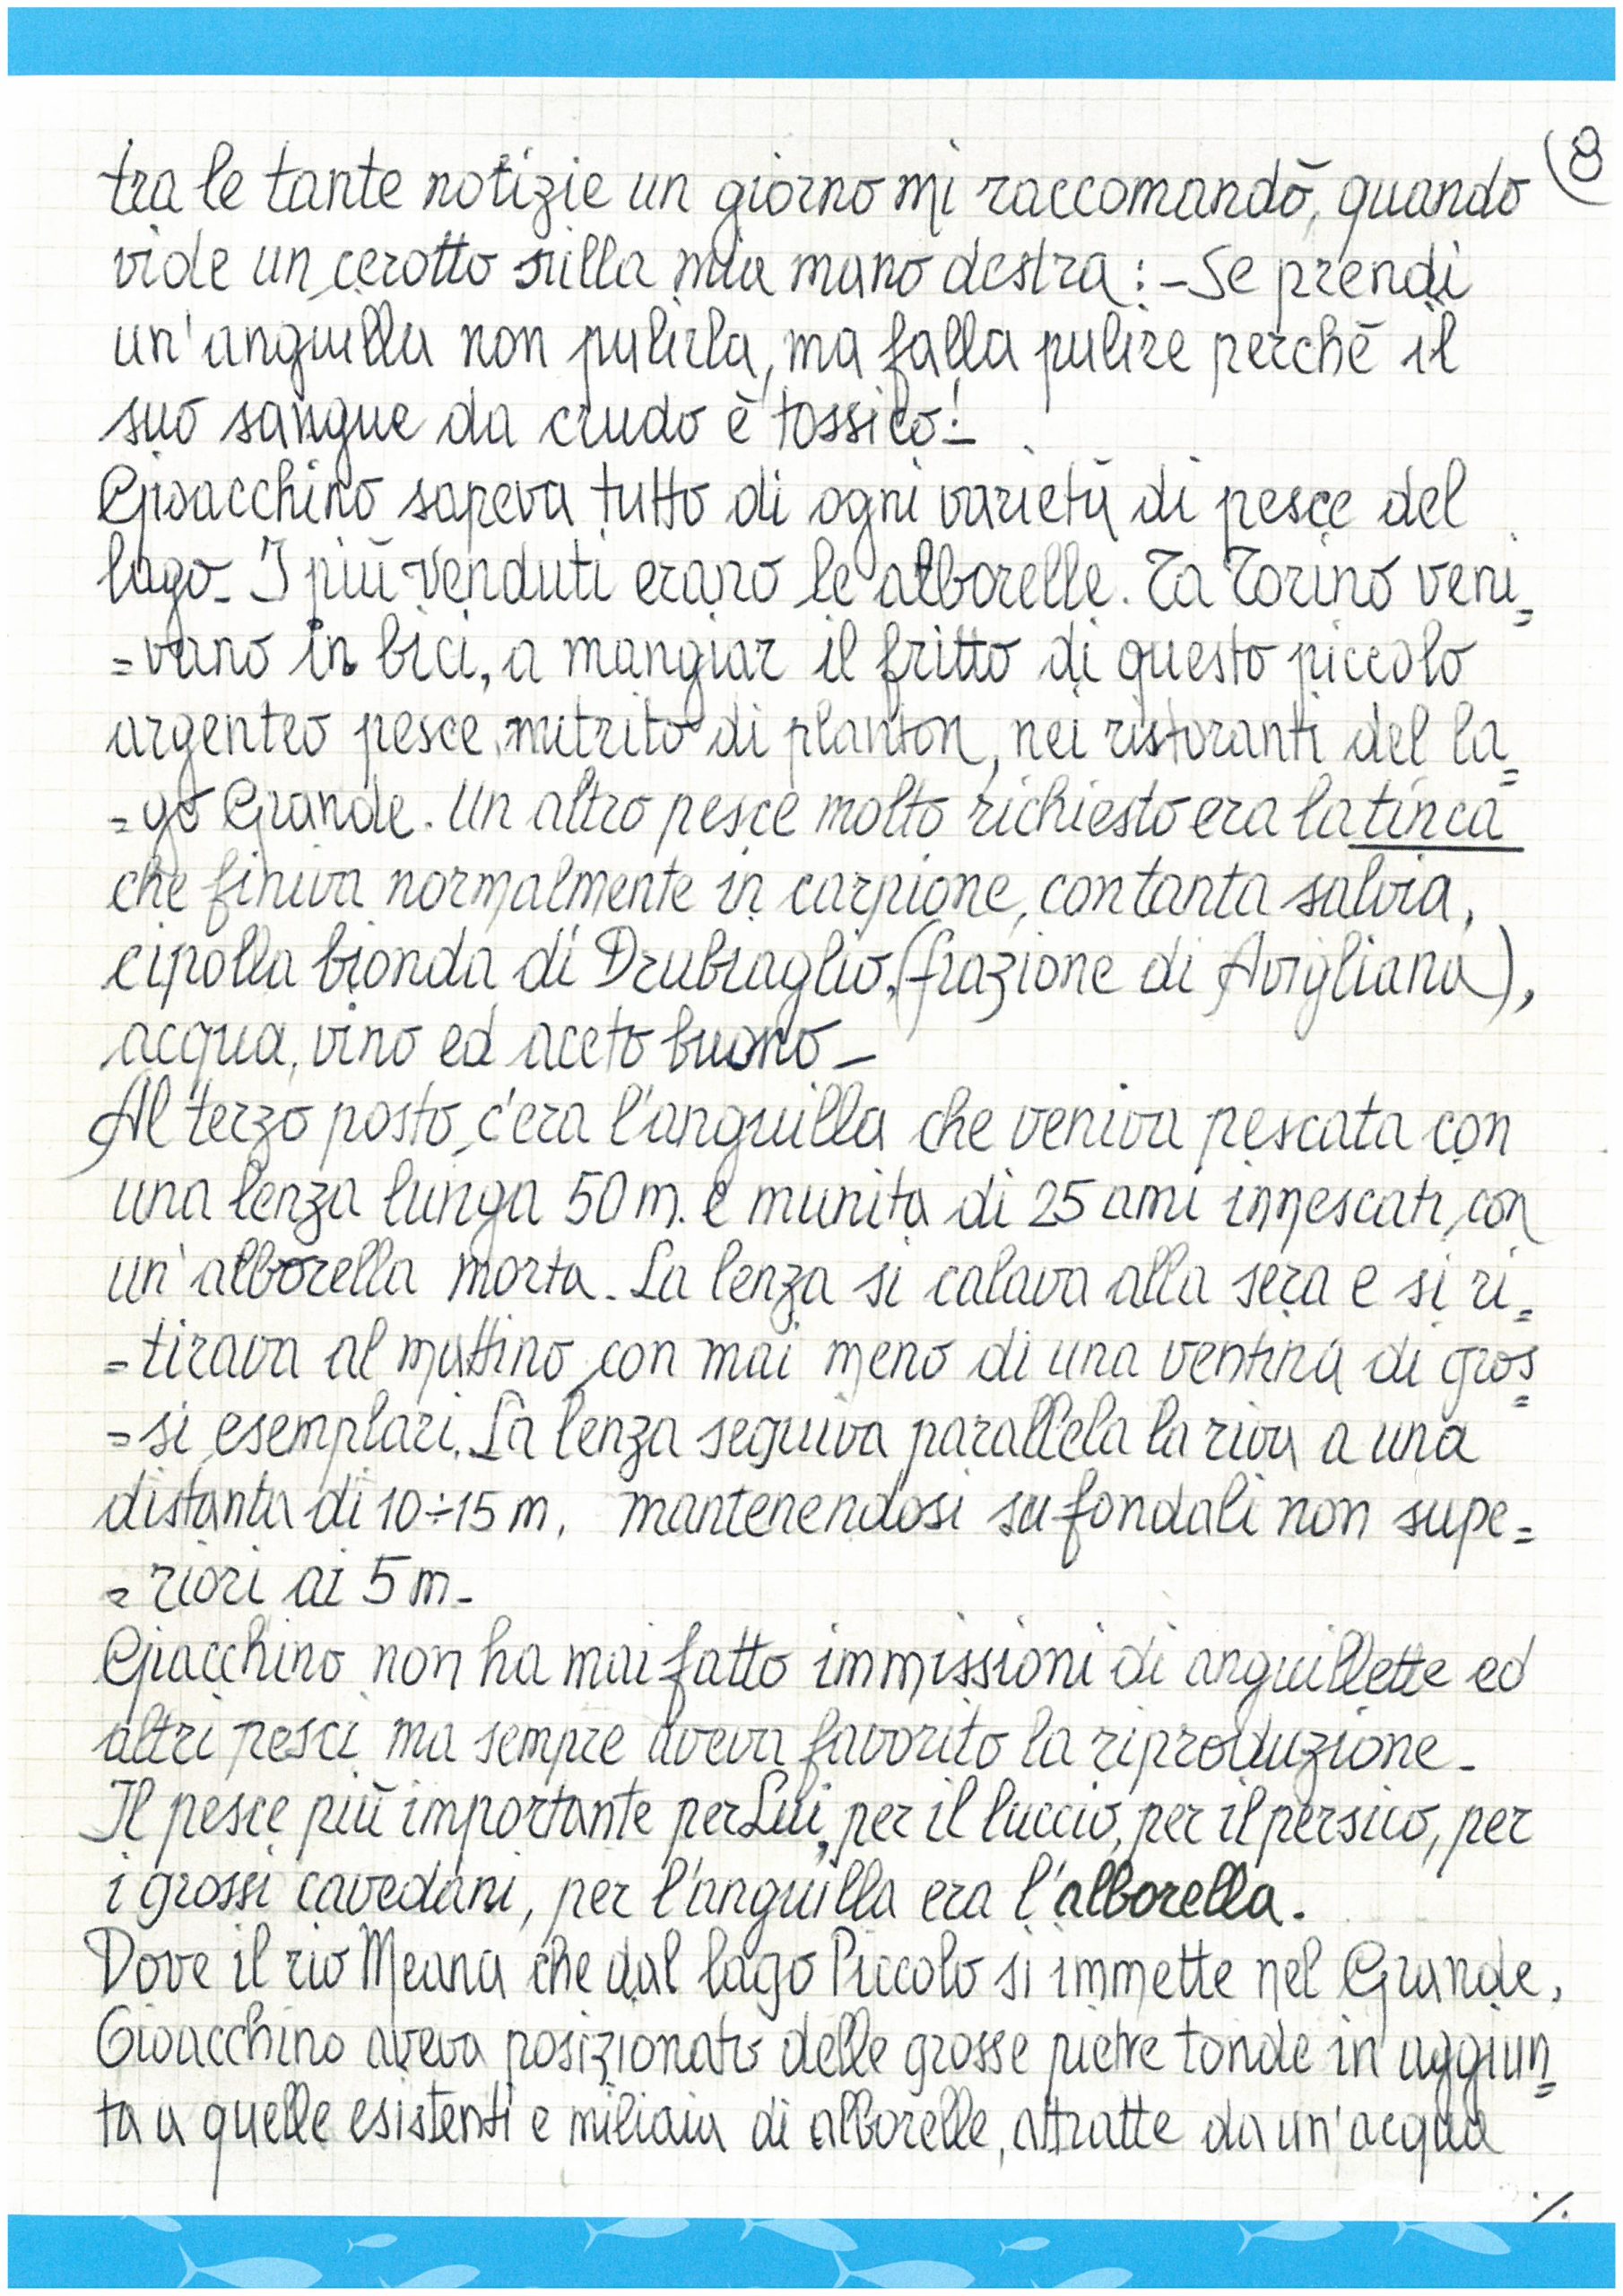 8
tra le tante notizie un giorno mi raccomandò, quando
vide un cerotto sulla mia mano destra: - Se prendi
un'anguilla non pulirla, ma falla pulire perché il
suo sangue da crudo è tossico! -
Gioacchino sapeva tutto di ogni varietà di pesce del
lago - I più venduti erano le alborelle. Da Torino veni=
=vano in bici, a mangiar il fritto di questo piccolo
argenteo pesce, nutrito di plancton, nei ristoranti del la=
=go Grande. Un altro pesce molto richiesto era la tinca
che finiva normalmente in carpione, con tanta salvia,
cipolla bionda di Drubiaglio, (frazione di Avigliana),
acqua, vino ed aceto buono -
Al terzo posto, c'era l'anguilla che veniva pescata con
una lenza lunga 50 m. e munita di 25 ami innescati, con
un'alborella morta. La lenza si calava alla sera e si ri=
=tirava al mattino, con mai meno di una ventina di gros=
=si esemplari. La lenza seguiva parallela la riva a una
distanta di 10÷15 m, mantenendosi su fondali non supe=
=riori ai 5 m -
Giacchino non ha mai fatto immissioni di anguillette ed
altri pesci, ma sempre aveva favorito la riproduzione -
Il pesce più importante per Lui, per il luccio, per il persico, per
i grossi cavedani, per l'anguilla era l'alborella.
Dove il rio Meana che dal lago Piccolo si immette nel Grande,
Gioacchino aveva posizionato delle grosse pietre tonde in aggiun=
ta a quelle esistenti e miliaia di alborelle, attratte da un'acqua
./.